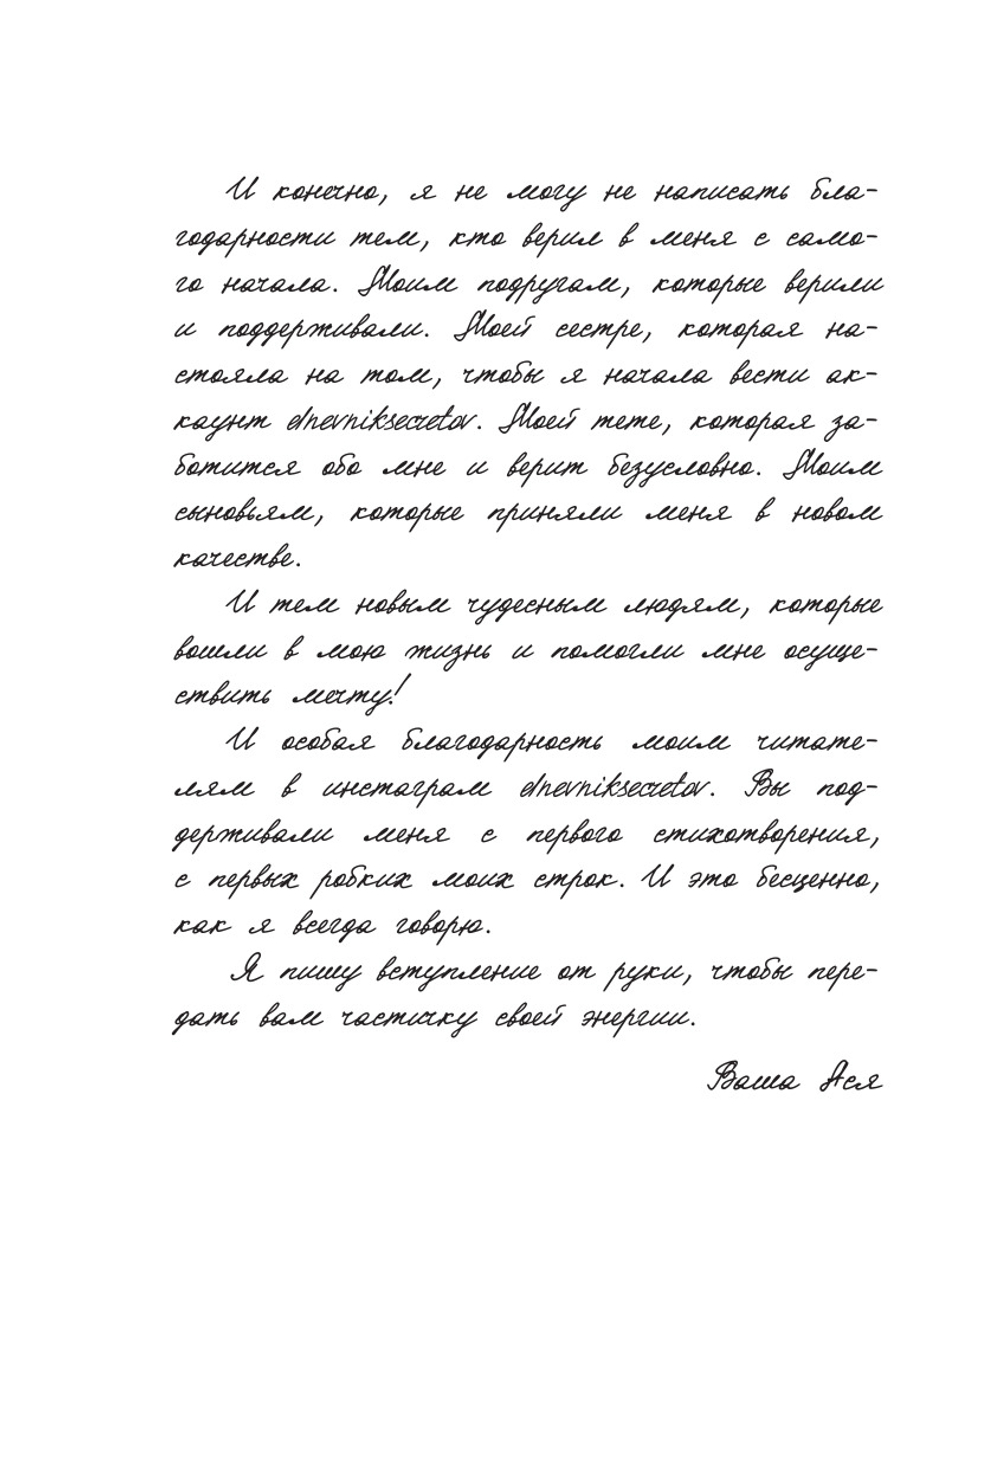 И конечно, я не могу не написать бла-
годарности тем, кто верил в меня с само-
го начала. Моим подругам, которые верили
и поддерживали. Моей сестре, которая на-
стояла на том, чтобы я начала вести ак-
каунт dnevniksecretov. Моей тете, которая за-
ботится обо мне и верит безусловно. Моим
сыновьям, которые приняли меня в новом
качестве.
И тем новым чудесным людям, которые
вошли в мою жизнь и помогли мне осуще-
ствить мечту!
И особая благодарность моим читате-
лям в инстаграм dnevniksecretov. Вы под-
держивали меня с первого стихотворения,
с первых робких моих строк. И это бесценно,
как я всегда говорю.
Я пишу вступление от руки, чтобы пере-
дать вам частичку своей энергии.
Ваша Ася